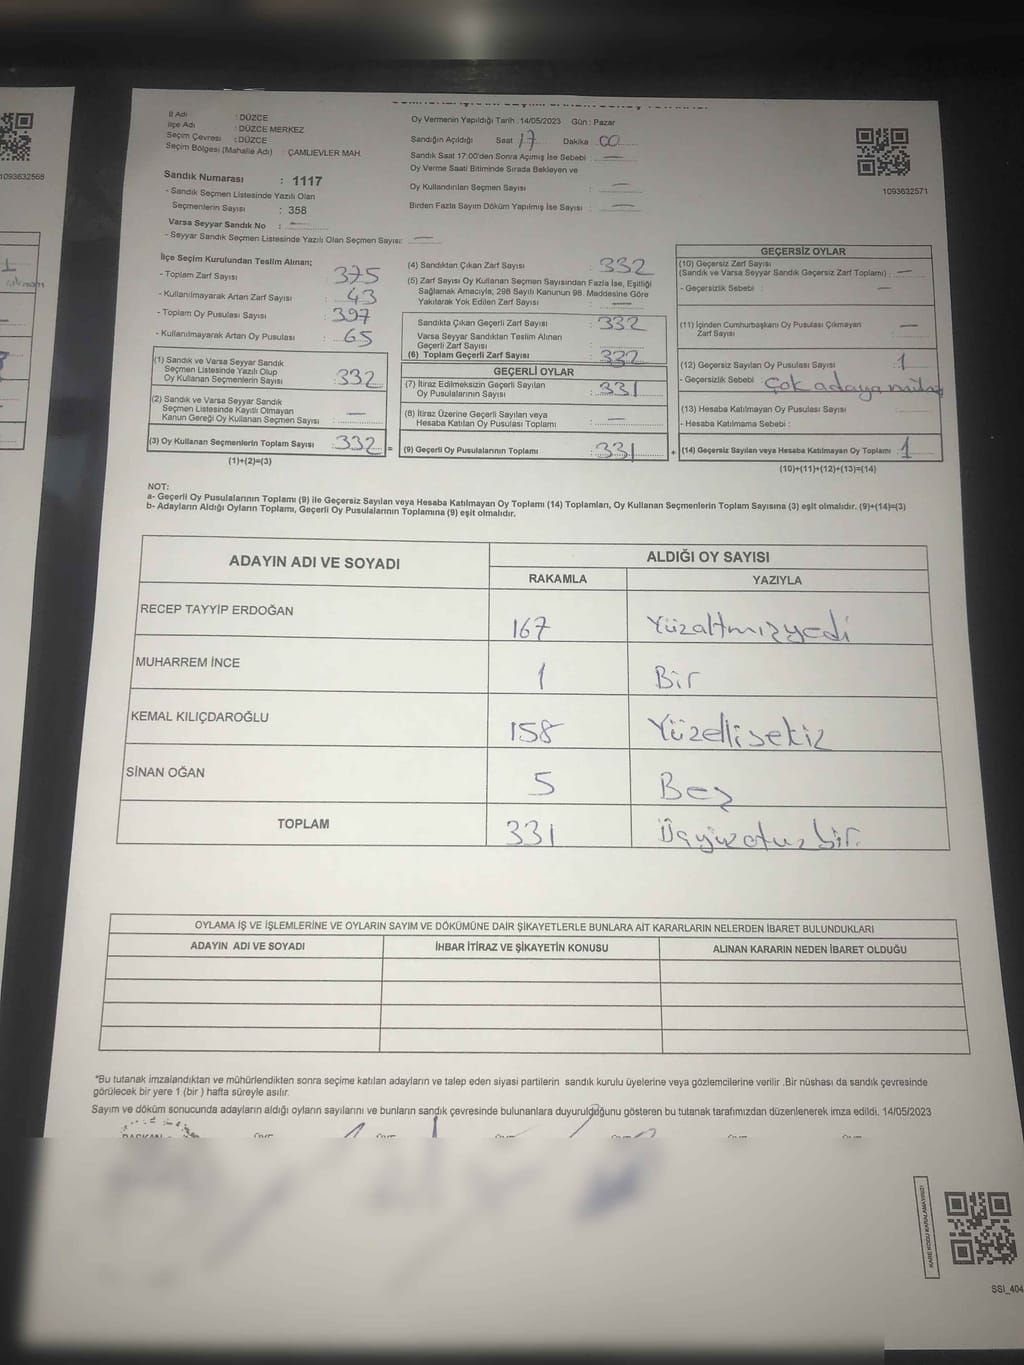 İl Adı : DÜZCE
İlçe Adı : DÜZCE MERKEZ
Seçim Çevresi : DÜZCE
Seçim Bölgesi (Mahalle Adı) : ÇAMLIEVLER MAH
Sandık Numarası : 1117
- Sandık Seçmen Listesinde Yazılı Olan
Seçmenlerin Sayısı : 358
Varsa Seyyar Sandık No :
- Seyyar Sandık Seçmen Listesinde Yazılı Olan Seçmen Sayısı: —
Oy Vermenin Yapıldığı Tarih :14/05/2023 Gün : Pazar
Sandığın Açıldığı Saat 17 Dakika 00
Sandık Saat 17:00'den Sonra Açımış İse Sebebi : —
Oy Verme Saati Bitiminde Sırada Bekleyen ve
Oy Kullandırılan Seçmen Sayısı : —
Birden Fazla Sayım Döküm Yapılmış İse Sayısı : —
1093632568
1093632571
İlçe Seçim Kurulundan Teslim Alınan;
- Toplam Zarf Sayısı : 375
- Kullanılmayarak Artan Zarf Sayısı : 43
- Toplam Oy Pusulası Sayısı : 397
- Kullanılmayarak Artan Oy Pusulası : 65
(1) Sandık ve Varsa Seyyar Sandık
Seçmen Listesinde Yazılı Olup
Oy Kullanan Seçmenlerin Sayısı : 332
(2) Sandık ve Varsa Seyyar Sandık
Seçmen Listesinde Kayıtlı Olmayan
Kanun Gereği Oy Kullanan Seçmen Sayısı : —
(3) Oy Kullanan Seçmenlerin Toplam Sayısı : 332 =
(1)+(2)=(3)
(4) Sandıktan Çıkan Zarf Sayısı : 332
(5) Zarf Sayısı Oy Kullanan Seçmen Sayısından Fazla İse, Eşitliği
Sağlamak Amacıyla; 298 Sayılı Kanunun 98. Maddesine Göre
Yakılarak Yok Edilen Zarf Sayısı : —
Sandıkta Çıkan Geçerli Zarf Sayısı : 332
Varsa Seyyar Sandıktan Teslim Alınan
Geçerli Zarf Sayısı :
(6) Toplam Geçerli Zarf Sayısı : 332
GEÇERLİ OYLAR
(7) İtiraz Edilmeksizin Geçerli Sayılan
Oy Pusulalarının Sayısı : 331
(8) İtiraz Üzerine Geçerli Sayılan veya
Hesaba Katılan Oy Pusulası Toplamı : —
(9) Geçerli Oy Pusulalarının Toplamı : 331 +
GEÇERSİZ OYLAR
(10) Geçersiz Zarf Sayısı
(Sandık ve Varsa Seyyar Sandık Geçersiz Zarf Toplamı) : —
- Geçersizlik Sebebi : —
(11) İçinden Cumhurbaşkanı Oy Pusulası Çıkmayan
Zarf Sayısı : —
(12) Geçersiz Sayılan Oy Pusulası Sayısı : 1
- Geçersizlik Sebebi : Çok adaya
(13) Hesaba Katılmayan Oy Pusulası Sayısı :
- Hesaba Katılmama Sebebi :
(14) Geçersiz Sayılan veya Hesaba Katılmayan Oy Toplamı : 1
(10)+(11)+(12)+(13)=(14)
NOT:
a- Geçerli Oy Pusulalarının Toplamı (9) ile Geçersiz Sayılan veya Hesaba Katılmayan Oy Toplamı (14) Toplamları, Oy Kullanan Seçmenlerin Toplam Sayısına (3) eşit olmalıdır. (9)+(14)=(3)
b- Adayların Aldığı Oyların Toplamı, Geçerli Oy Pusulalarının Toplamına (9) eşit olmalıdır.
ADAYIN ADI VE SOYADI ALDIĞI OY SAYISI
RAKAMLA YAZIYLA
RECEP TAYYİP ERDOĞAN 167 Yüzaltmışyedi
MUHARREM İNCE 1 Bir
KEMAL KILIÇDAROĞLU 158 Yüzellisekiz
SİNAN OĞAN 5 Beş
TOPLAM 331 Üçyüzotuzbir.
OYLAMA İŞ VE İŞLEMLERİNE VE OYLARIN SAYIM VE DÖKÜMÜNE DAİR ŞİKAYETLERLE BUNLARA AİT KARARLARIN NELERDEN İBARET BULUNDUKLARI
ADAYIN ADI VE SOYADI İHBAR İTİRAZ VE ŞİKAYETİN KONUSU ALINAN KARARIN NEDEN İBARET OLDUĞU
*Bu tutanak imzalandıktan ve mühürlendikten sonra seçime katılan adayların ve talep eden siyasi partilerin sandık kurulu üyelerine veya gözlemcilerine verilir .Bir nüshası da sandık çevresinde
görülecek bir yere 1 (bir ) hafta süreyle asılır.
Sayım ve döküm sonucunda adayların aldığı oyların sayılarını ve bunların sandık çevresinde bulunanlara duyurulduğunu gösteren bu tutanak tarafımızdan düzenlenerek imza edildi. 14/05/2023
KARE KODU KARALAMAYINIZ!